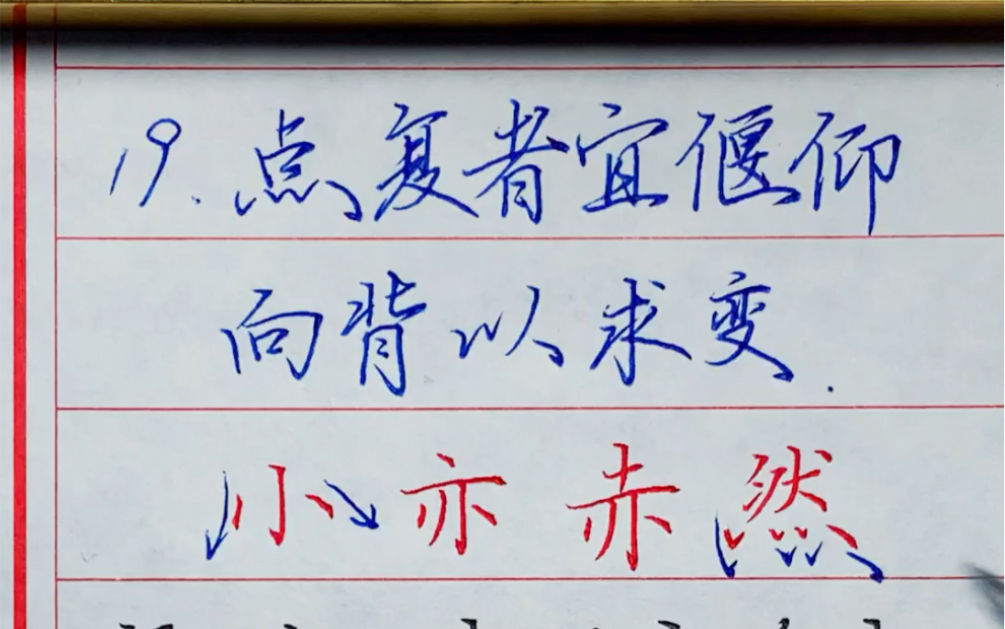 19.点复者宜偃仰
向背以求变.
小亦赤然